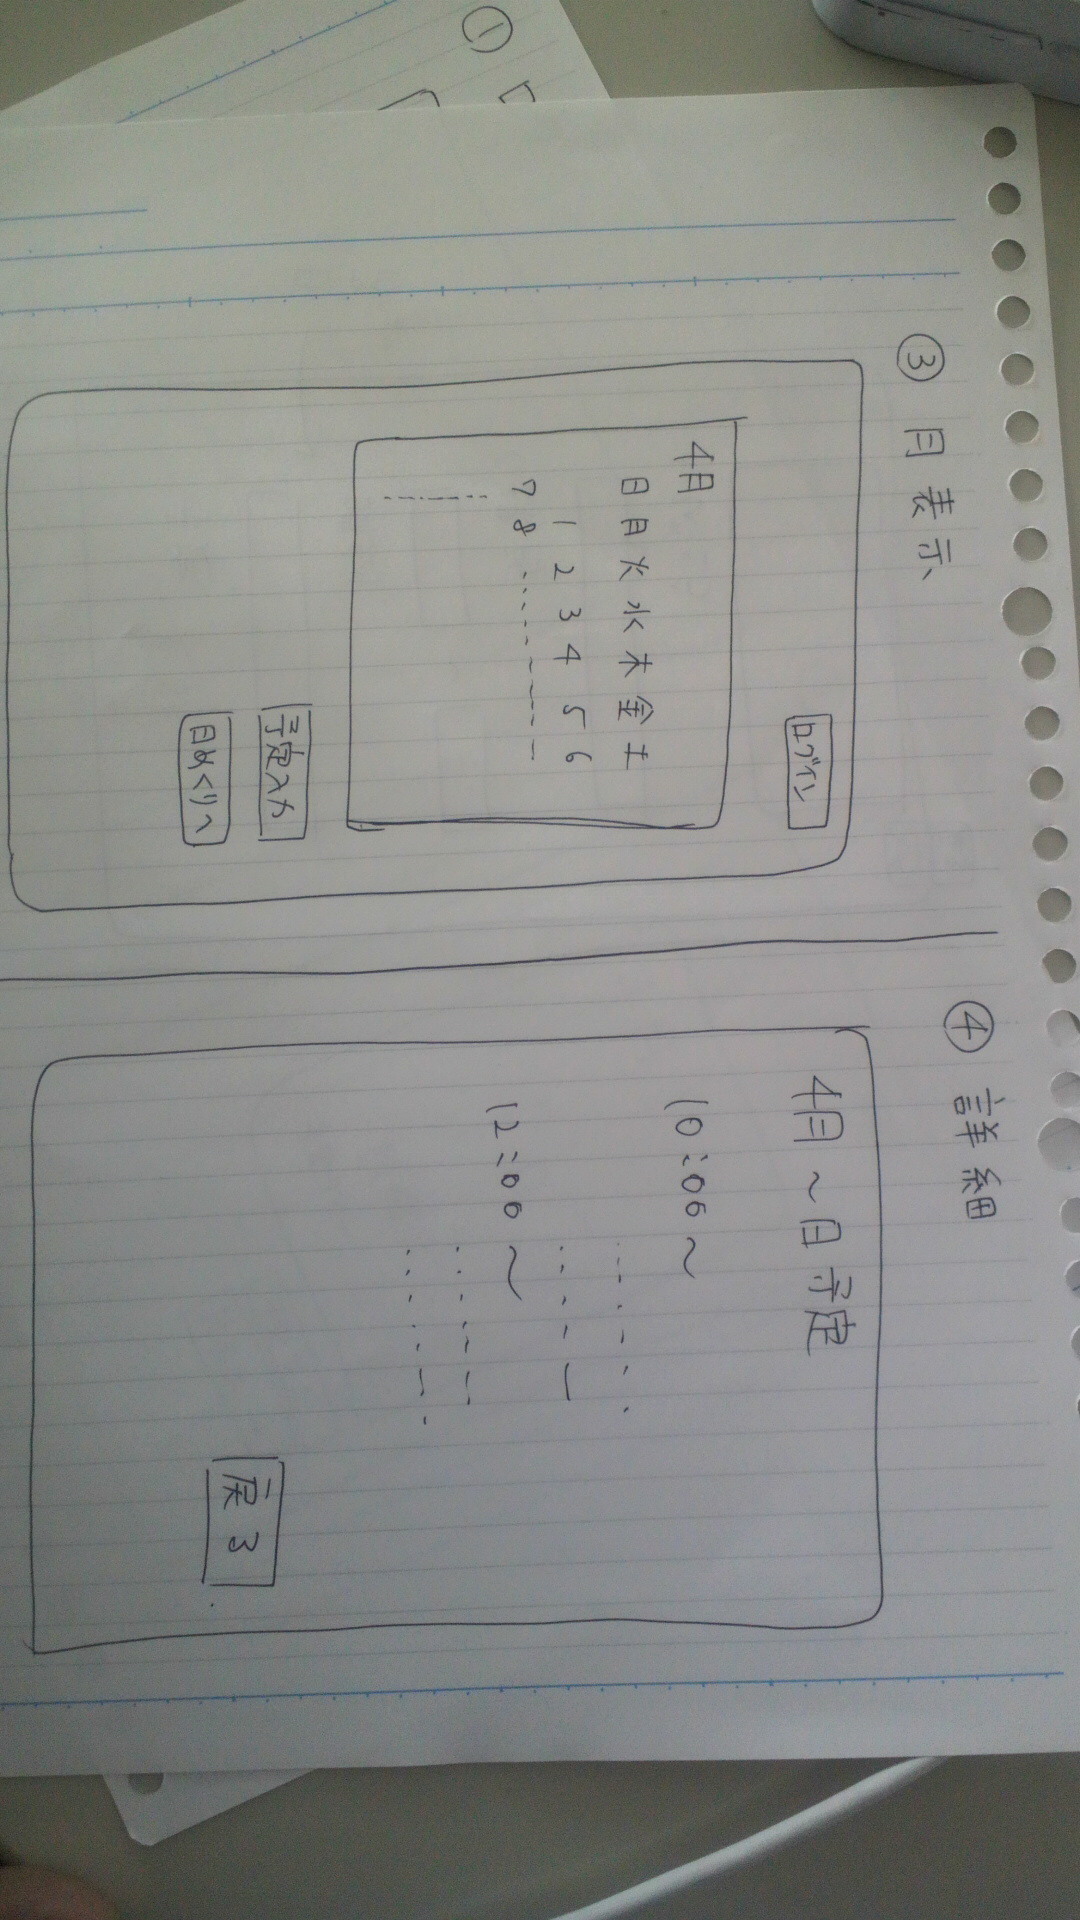 ①
③ 月表示
ログイン
4月
日 月 火 水 木 金 土
1 2 3 4 5 6
7 8
予定入力
日めくりへ
④ 詳細
4月~日予定
10:00~
12:00~
戻る